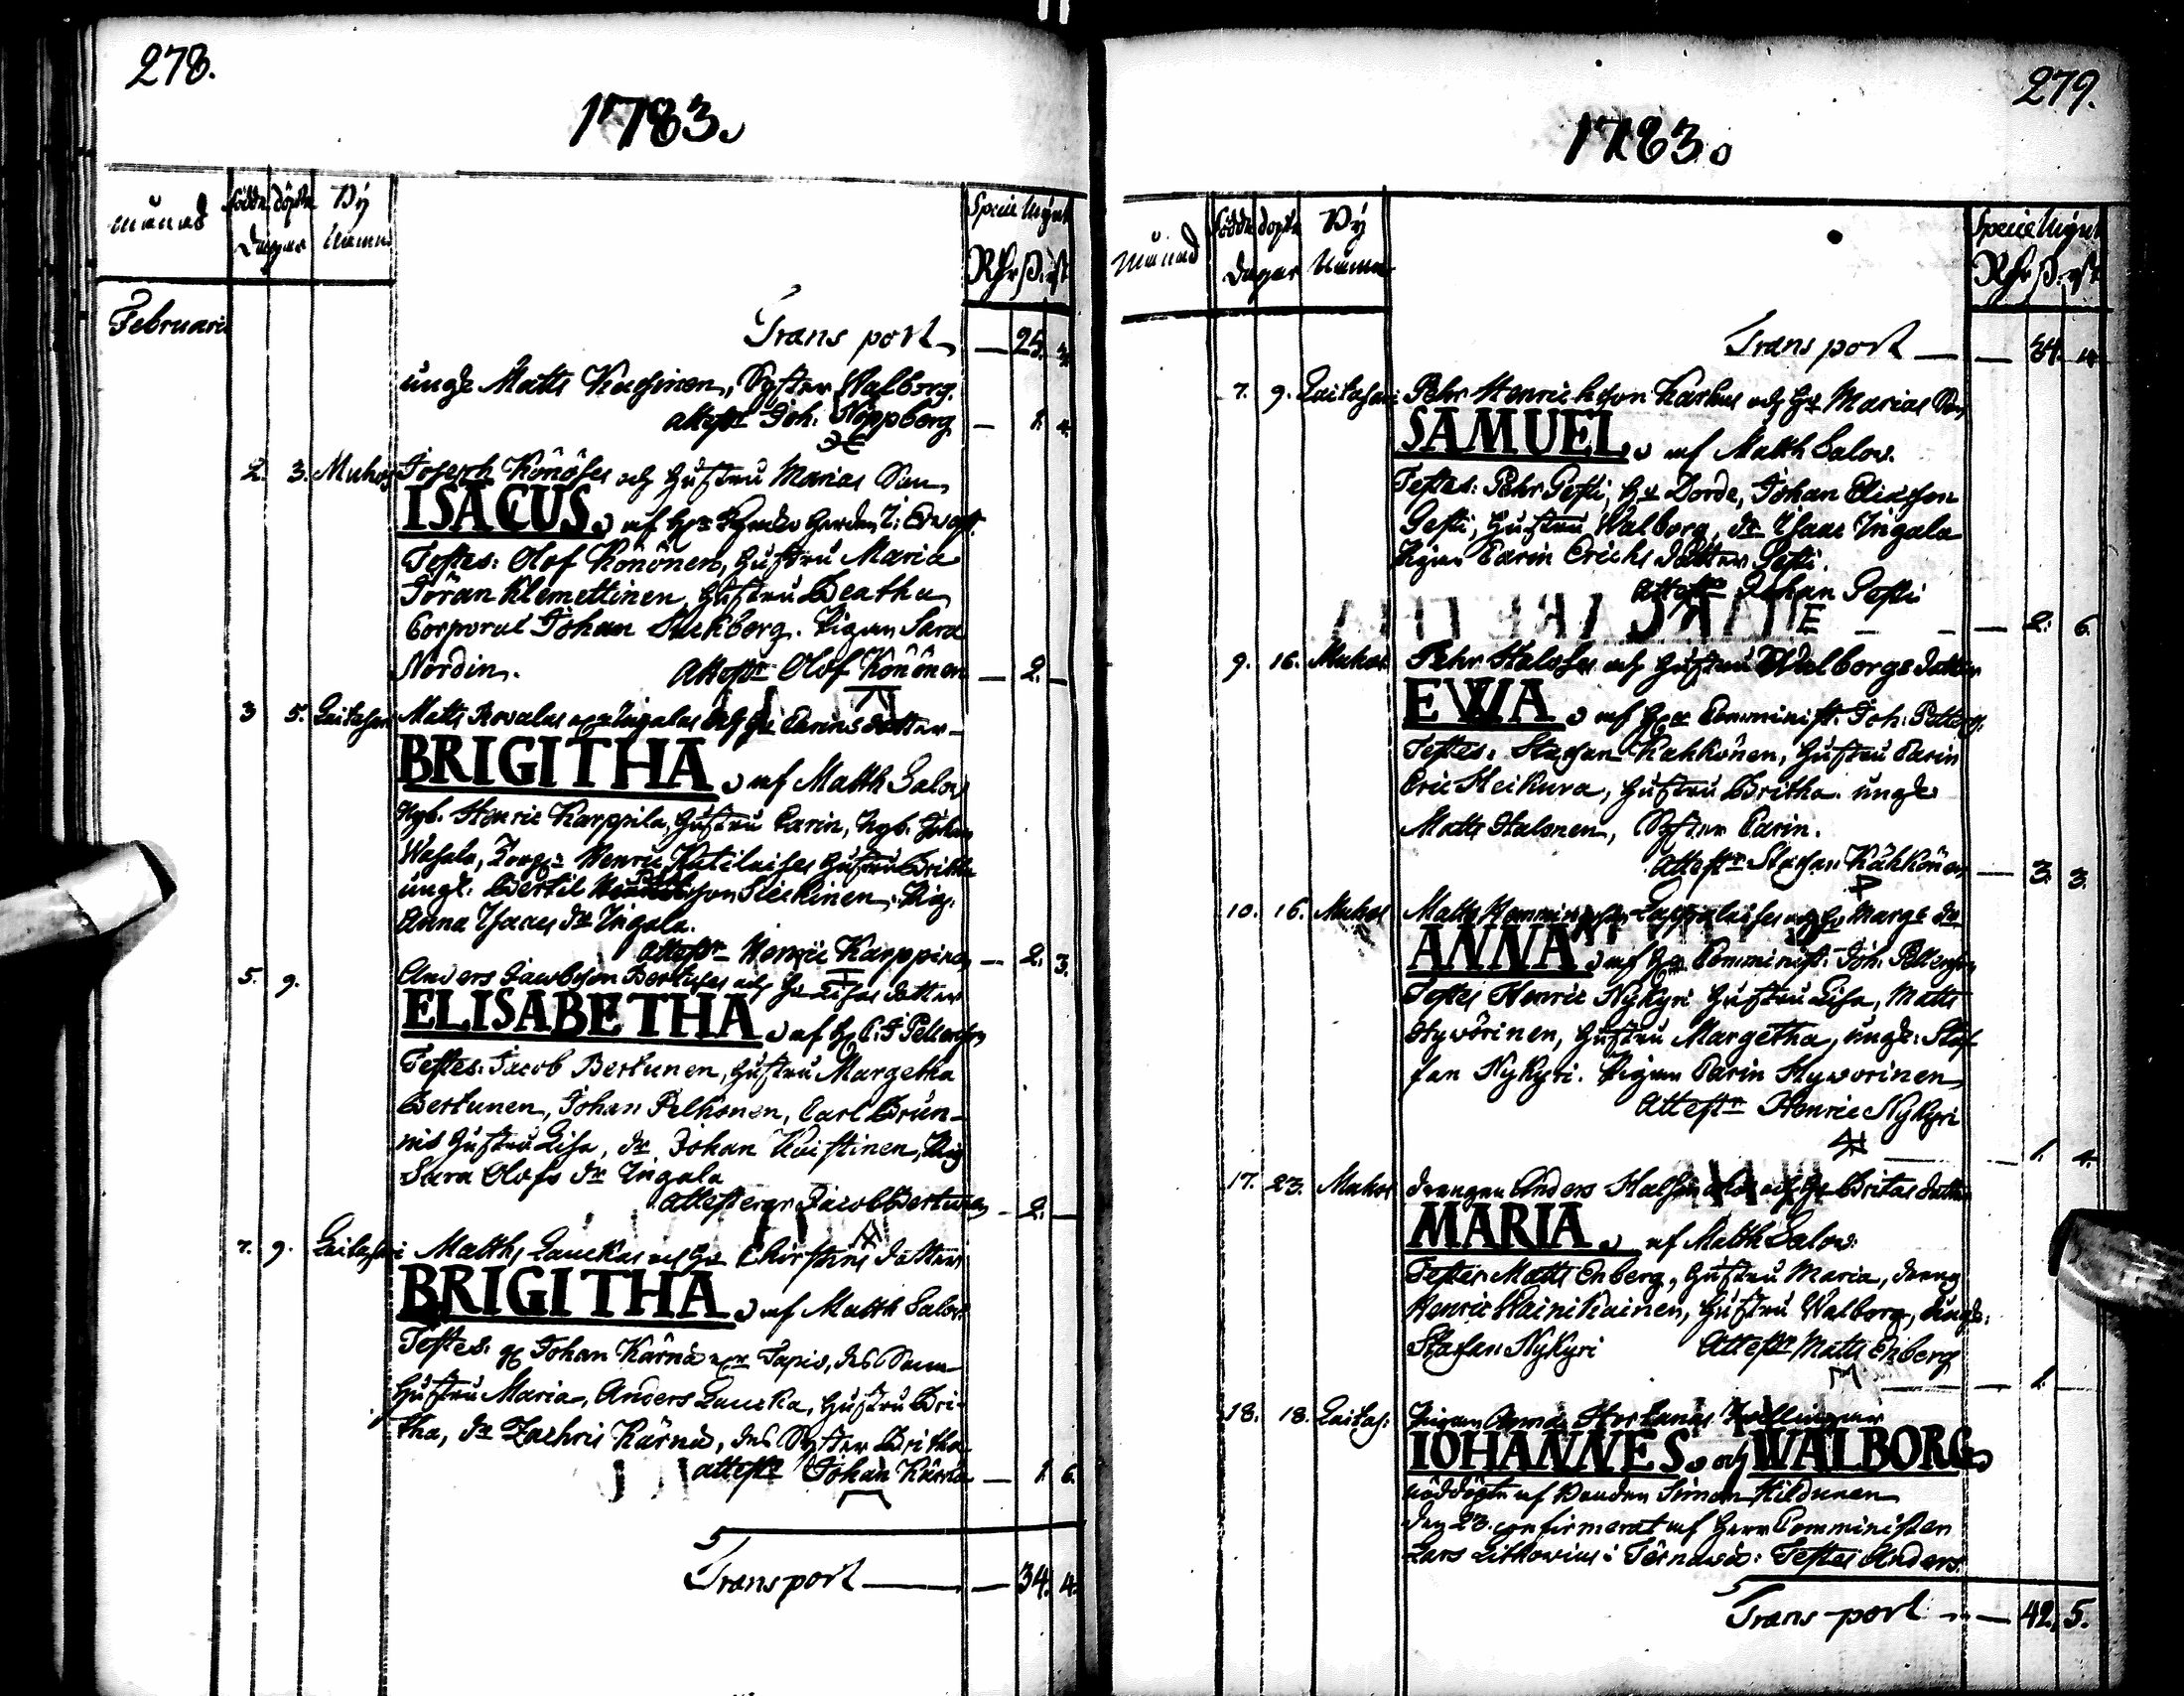 278.
1783.
månad
födde
döpte
dagar
By
Namn
Specie Mynt
Rdr ß. rst
Februarii
Transport — 25. 3.
ungk Matts Kachinen, Syster Walborg.
attestr Joh. Höppberg — 1. 4.
2. 3. Muhos Joseph Könöses och hustru Marias Son
ISACUS af
Testes: Olof Könönen, hustru Maria
Jöran Klemettinen hustru Beatha
Corporal Johan Stickborg. Pigan Sara
Nordin. Attestr Olof Könönen — 2. —
3 5. Laitasari Matts Kovalas Ingalas och hu Carins dotter
BRIGITHA af Matth Salov
Nyb. Henric Karppila, hustru Carin, Nyb. Johan
Wasala, Henric Kutilaises hustru Britha
ungk. Bertil son Sleikinen, Pig.
Anna Isaacs dr Ingala.
attestr Henric Karppinen — 2. 3.
5. 9. Anders Jacobsson Bertuses och hu Lisas dotter
ELISABETHA af H. C. J Pellensson
Testes: Jacob Bertunen, hustru Margetha
Bertunen, Johan Pelkonen, Carl Brun-
nis hustru Lisa, dr Johan Kuistinen, Pig
Sara Olofs dr Ingala
attesterar Jacob Bertunen — 2. —
7. 9. Laitasari Matths Lauckas och hu Chirstins dotter
BRIGITHA af Matth Salov.
Testes: Johan Kärnä Tapio, des Son
hustru Maria, Anders Laucka, hustru Bri-
tha, dr Zachris Kärnä, des Syster Britha
attestr Johan Kärnä — 1. 6.
Transport — — 34. 4.
279.
1783.
månad
födde
döpte
dagar
By
Namn
Specie Mynt
Rdr ß. rst
Transport — — 34. 4.
7. 9. Laitasari Pehr Henrichsson Karhus och hu Marias Son
SAMUEL af Matth Salov.
Testes: Pehr Pesti, hu Dorde, Johan Eliasson
Pesti, hustru Walborg, dr Isaac Ingala
Pigan Carin Erichs dotter Pesti.
Attestr Johan Pesti
— 2. 6.
9. 16. Muhos Pehr Haloses och hustru Walborgs dotter
EWA af Hr Comminist. Joh: Pellensg.
Testes: Staffan Kähkönen, hustru Carin
Eric Heikura, hustru Britha. ungk
Matts Halonen, Syster Carin.
Attestr Staffan Kähkönen — 3. 3.
10. 16. Muhos Matts Hemmingsson Lappalaises och hu Marge dr
ANNA af Hr Comminist: Joh. Pellensson
Testes Henric Nykyri hustru Lisa, Matts
Hyvörinen, hustru Margetha, ungk: Staf-
fan Nykyri. Pigan Carin Hyvorinen
Attestr Henric Nykyri
— 1. 4.
17. 23. Muhos drengen Anders och hu Britas dotter
MARIA af Matth Salov.
Testes Matts Enberg, hustru Maria, dreng
Henric Kainikainen, hustru Walborg, ungk:
Staffan Nykyri Attestr Matts Enberg
— 1.
18. 18. Laitas: Pigan Anna Hortanas Tvillingar
IOHANNES och WALBORG
nöddöpte af Bonden Simon Hildunen
den 23. confirmerat af Herr Comministern
Lars Lithovius i Tärnäwä: Testes Anders
Transport — 42. 5.